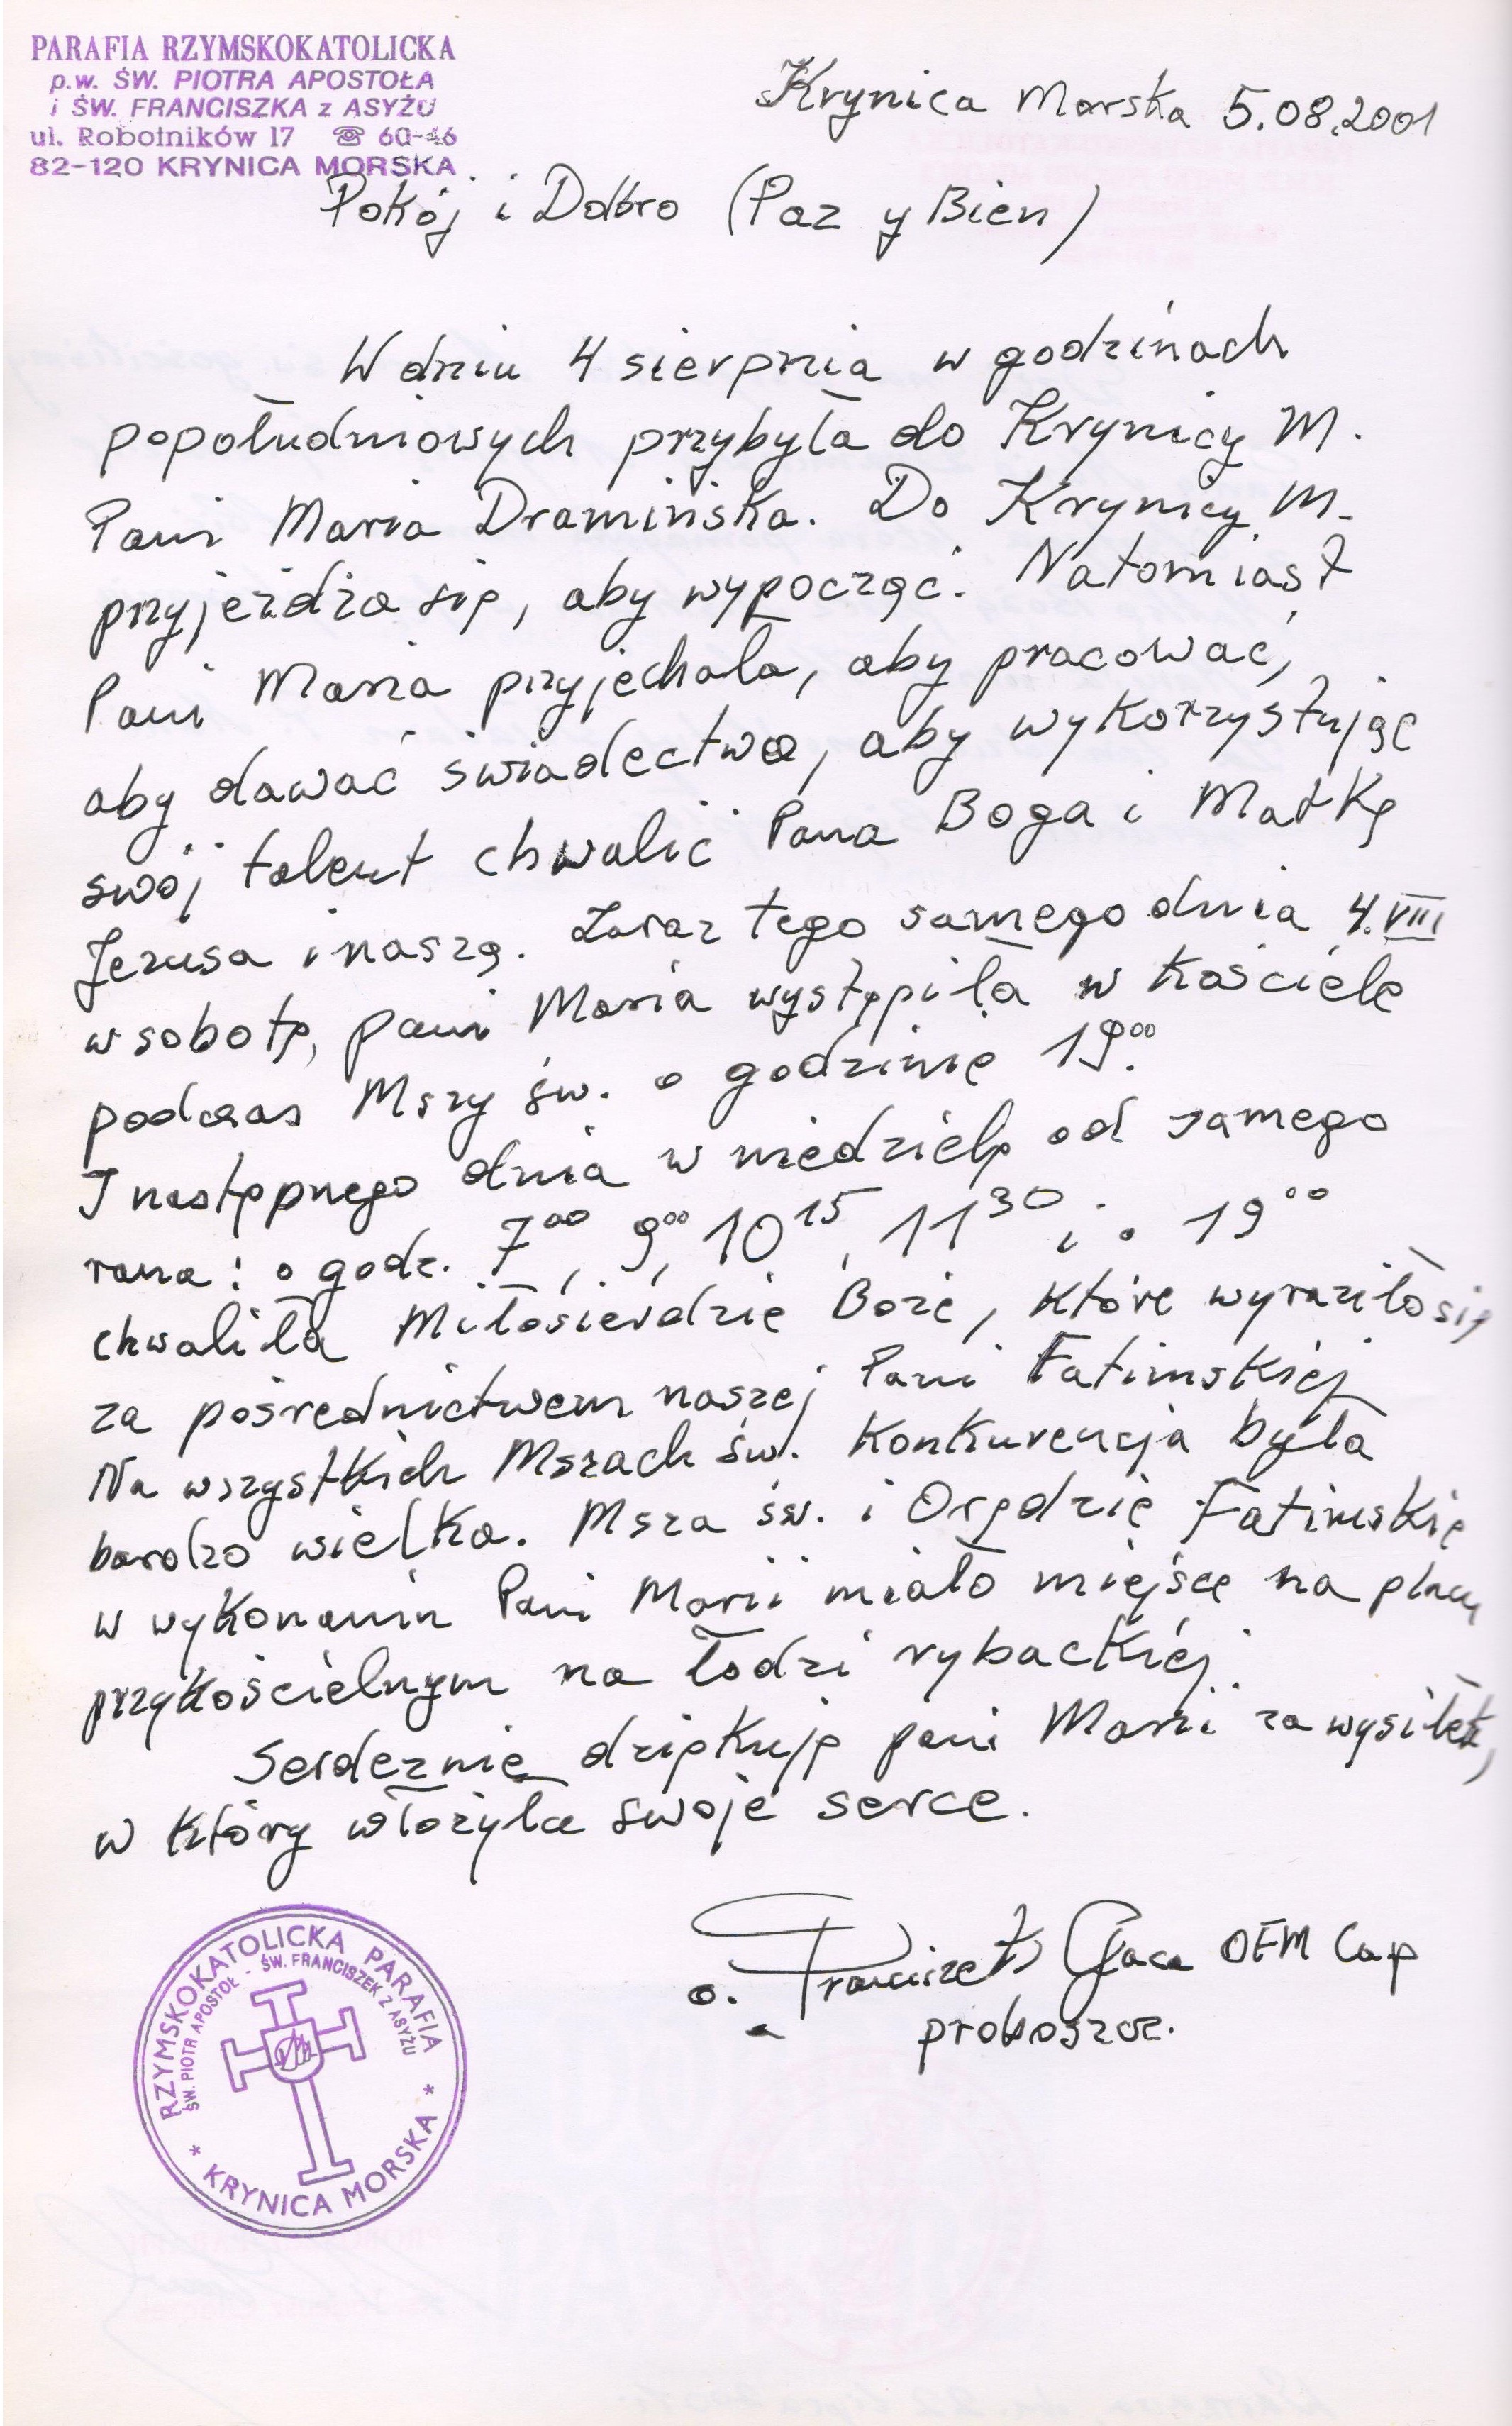 PARAFIA RZYMSKOKATOLICKA
p.w. ŚW. PIOTRA APOSTOŁA
i ŚW. FRANCISZKA z ASYŻU
ul. Robotników 17 ☎ 60-46
82-120 KRYNICA MORSKA
Krynica Morska 5.08.2001
Pokój i Dobro (Paz y Bien)
W dniu 4 sierpnia w godzinach
popołudniowych przybyła do Krynicy M.
Pani Maria Dramińska. Do Krynicy M.
przyjeżdża się, aby wypocząć. Natomiast
Pani Maria przyjechała, aby pracować,
aby dawać świadectwo, aby wykorzystując
swój talent chwalić Pana Boga i Matkę
Jezusa i naszą. Zaraz tego samego dnia 4.VIII
w sobotę, pani Maria wystąpiła w kościele
podczas Mszy św. o godzinie 19⁰⁰.
I następnego dnia w niedzielę od samego
rana: o godz. 7⁰⁰, 9⁰⁰, 10¹⁵, 11³⁰ i o 19⁰⁰
chwaliła Miłosierdzie Boże, które wyraziło się
za pośrednictwem naszej Pani Fatimskiej
Na wszystkich Mszach św. konkurencja była
bardzo wielka. Msza św. i Orędzie Fatimskie
w wykonaniu Pani Marii miało miejsce na placu
przykościelnym na łodzi rybackiej.
Serdecznie dziękuję pani Marii za wysiłek,
w który włożyła swoje serce.
o. Franciszek OFM Cap
proboszcz.
RZYMSKOKATOLICKA PARAFIA
ŚW. PIOTR APOSTOŁ - ŚW. FRANCISZEK z ASYŻU
* KRYNICA MORSKA *